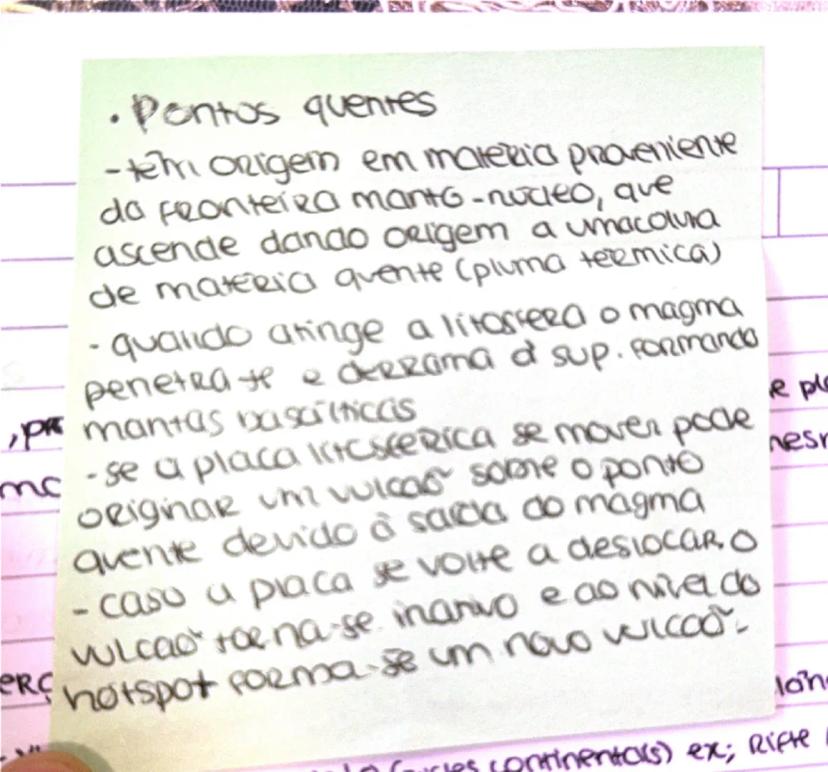 • Pontos quentes
- têm origem em matéria proveniente
da fronteira manto-núcleo, que
ascende dando origem a uma coluna
de matéria quente (pluma térmica)
- quando atinge a litosfera o magma
penetra-te e derrama á sup. formando
mantas basálticas
- se a placa litosférica se mover pode
originar um vulcão sobre o ponto
quente devido à saída do magma
- caso a placa se volte a deslocar, o
vulcão torna-se inativo e ao nível do
hotspot forma-se um novo vulcão.
continentais) ex; Rifte